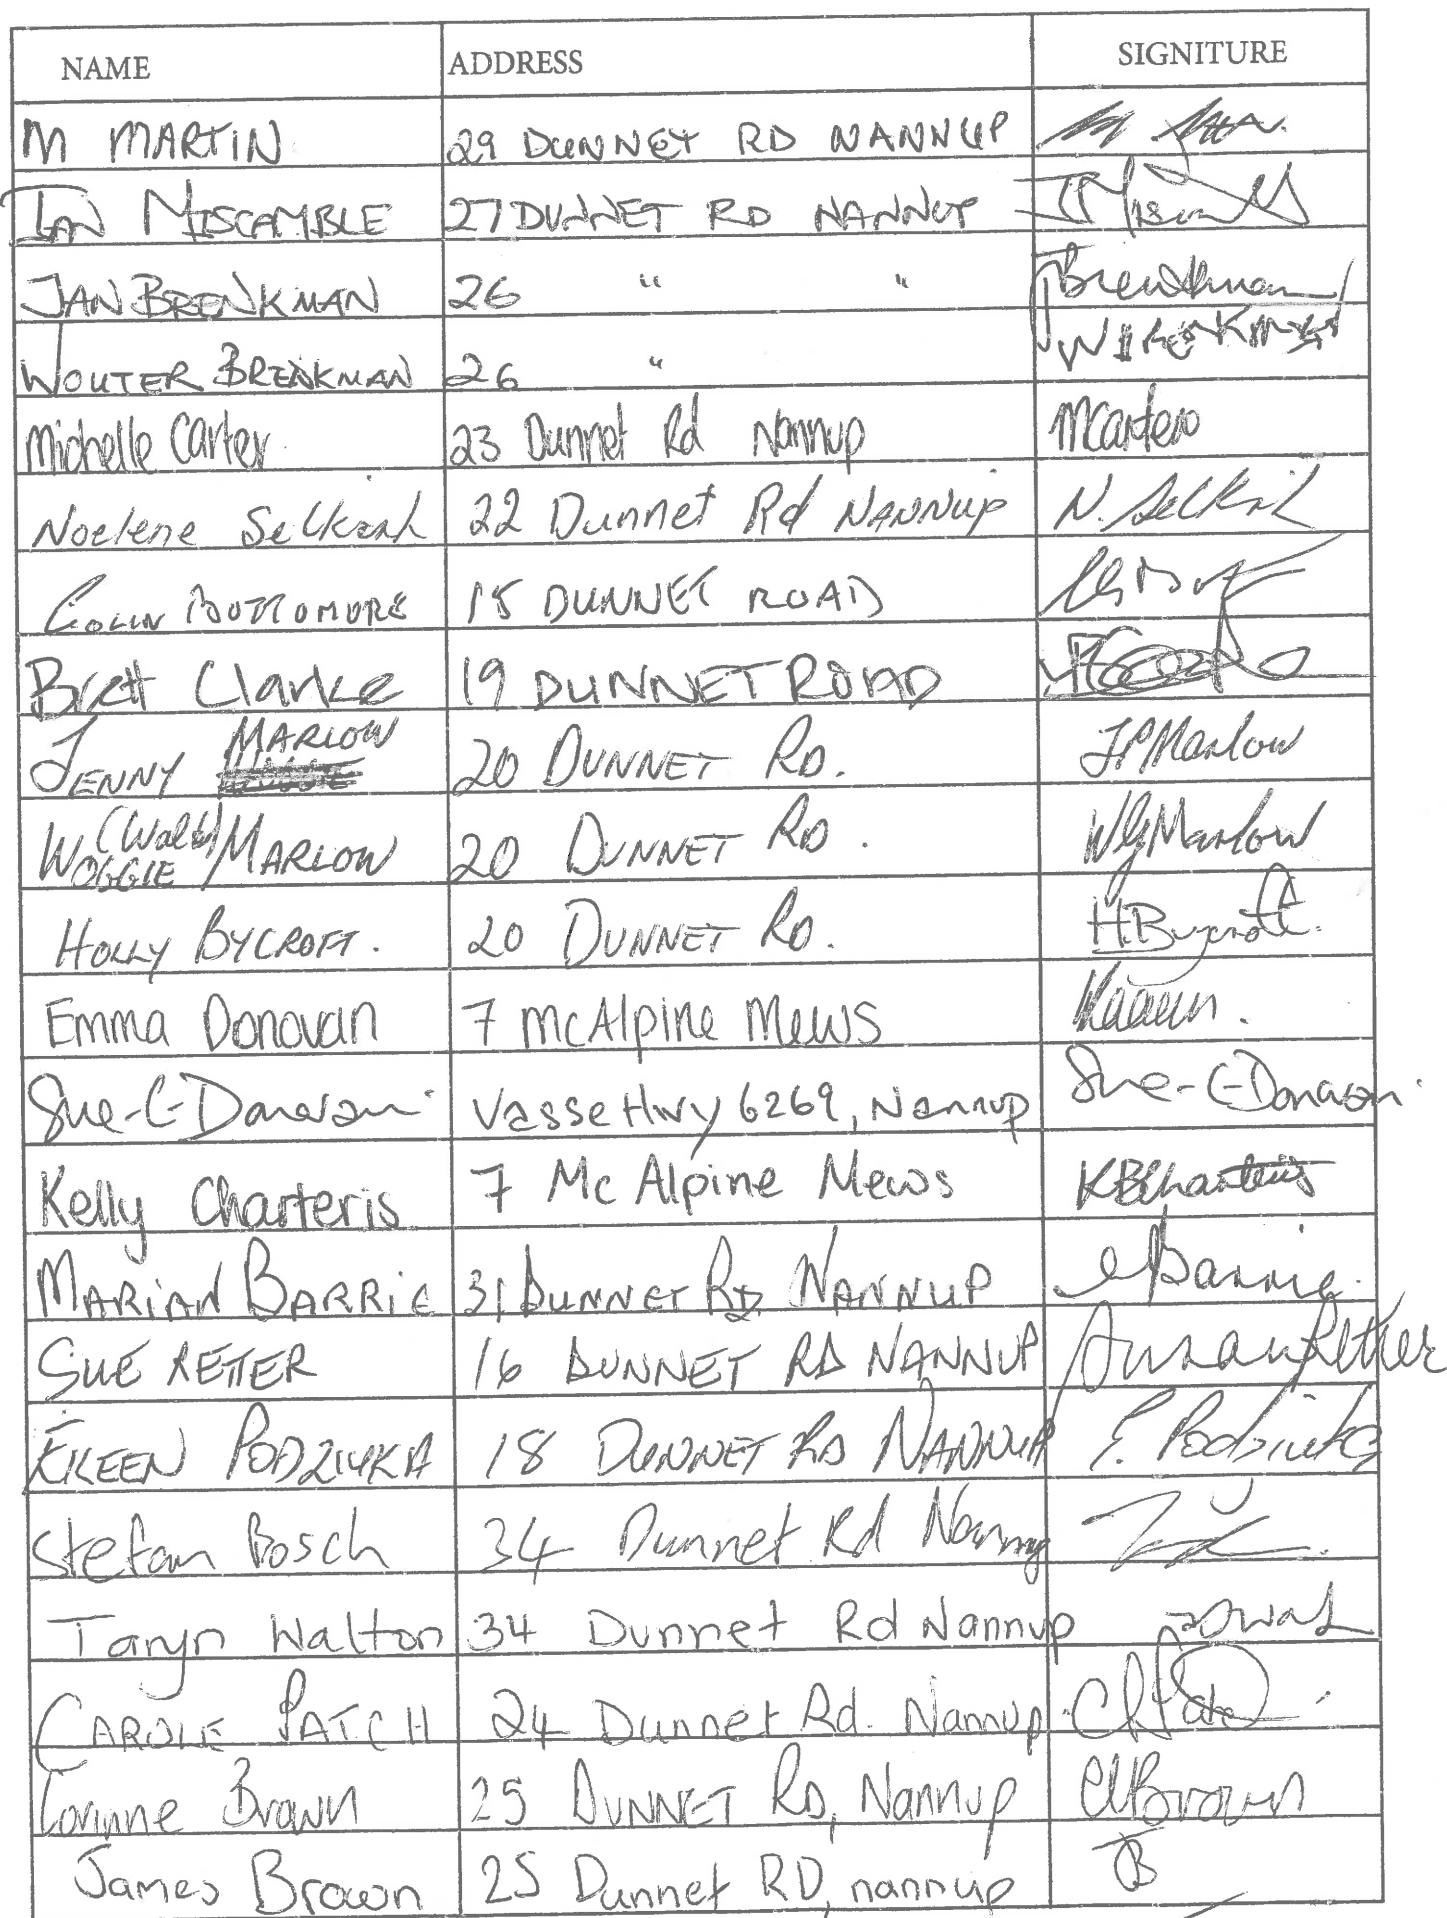 NAME ADDRESS SIGNITURE
M MARTIN 29 DUNNET RD NANNUP
IAN MISCAMBLE 27 DUNNET RD NANNUP
JAN BRENKMAN 26 " " Brenkman
WOUTER BRENKMAN 26 "
Michelle Carter 23 Dunnet Rd Nannup MCarter
Noelene Selkirk 22 Dunnet Rd NANNup N. Selkirk
COLIN BOTTOMORE 15 DUNNET ROAD
Brett Clarke 19 DUNNET ROAD
JENNY MARLOW 20 DUNNET RD. JPMarlow
WOGGIE (Wally) MARLOW 20 DUNNET RD. WGMarlow
HOLLY BYCROFT. 20 DUNNET RD. HBycroft.
Emma Donovan 7 McAlpine Mews
Sue-C-Donovan Vasse Hwy 6269, Nannup Sue-C-Donovan
Kelly Charteris 7 Mc Alpine Mews KBCharteris
MARIAN BARRIE 31 DUNNET RD NANNUP Barrie
SUE RETTER 16 DUNNET RD NANNUP Susan Retter
EILEEN 18 DUNNET RD NANNUP E.
Stefan Bosch 34 Dunnet Rd Nannup
Taryn Walton 34 Dunnet Rd Nannup
CAROLE PATCH 24 Dunnet Rd. Nannup
Corinne Brown 25 DUNNET RD, Nannup Brown
James Brown 25 Dunnet RD, nannup JB